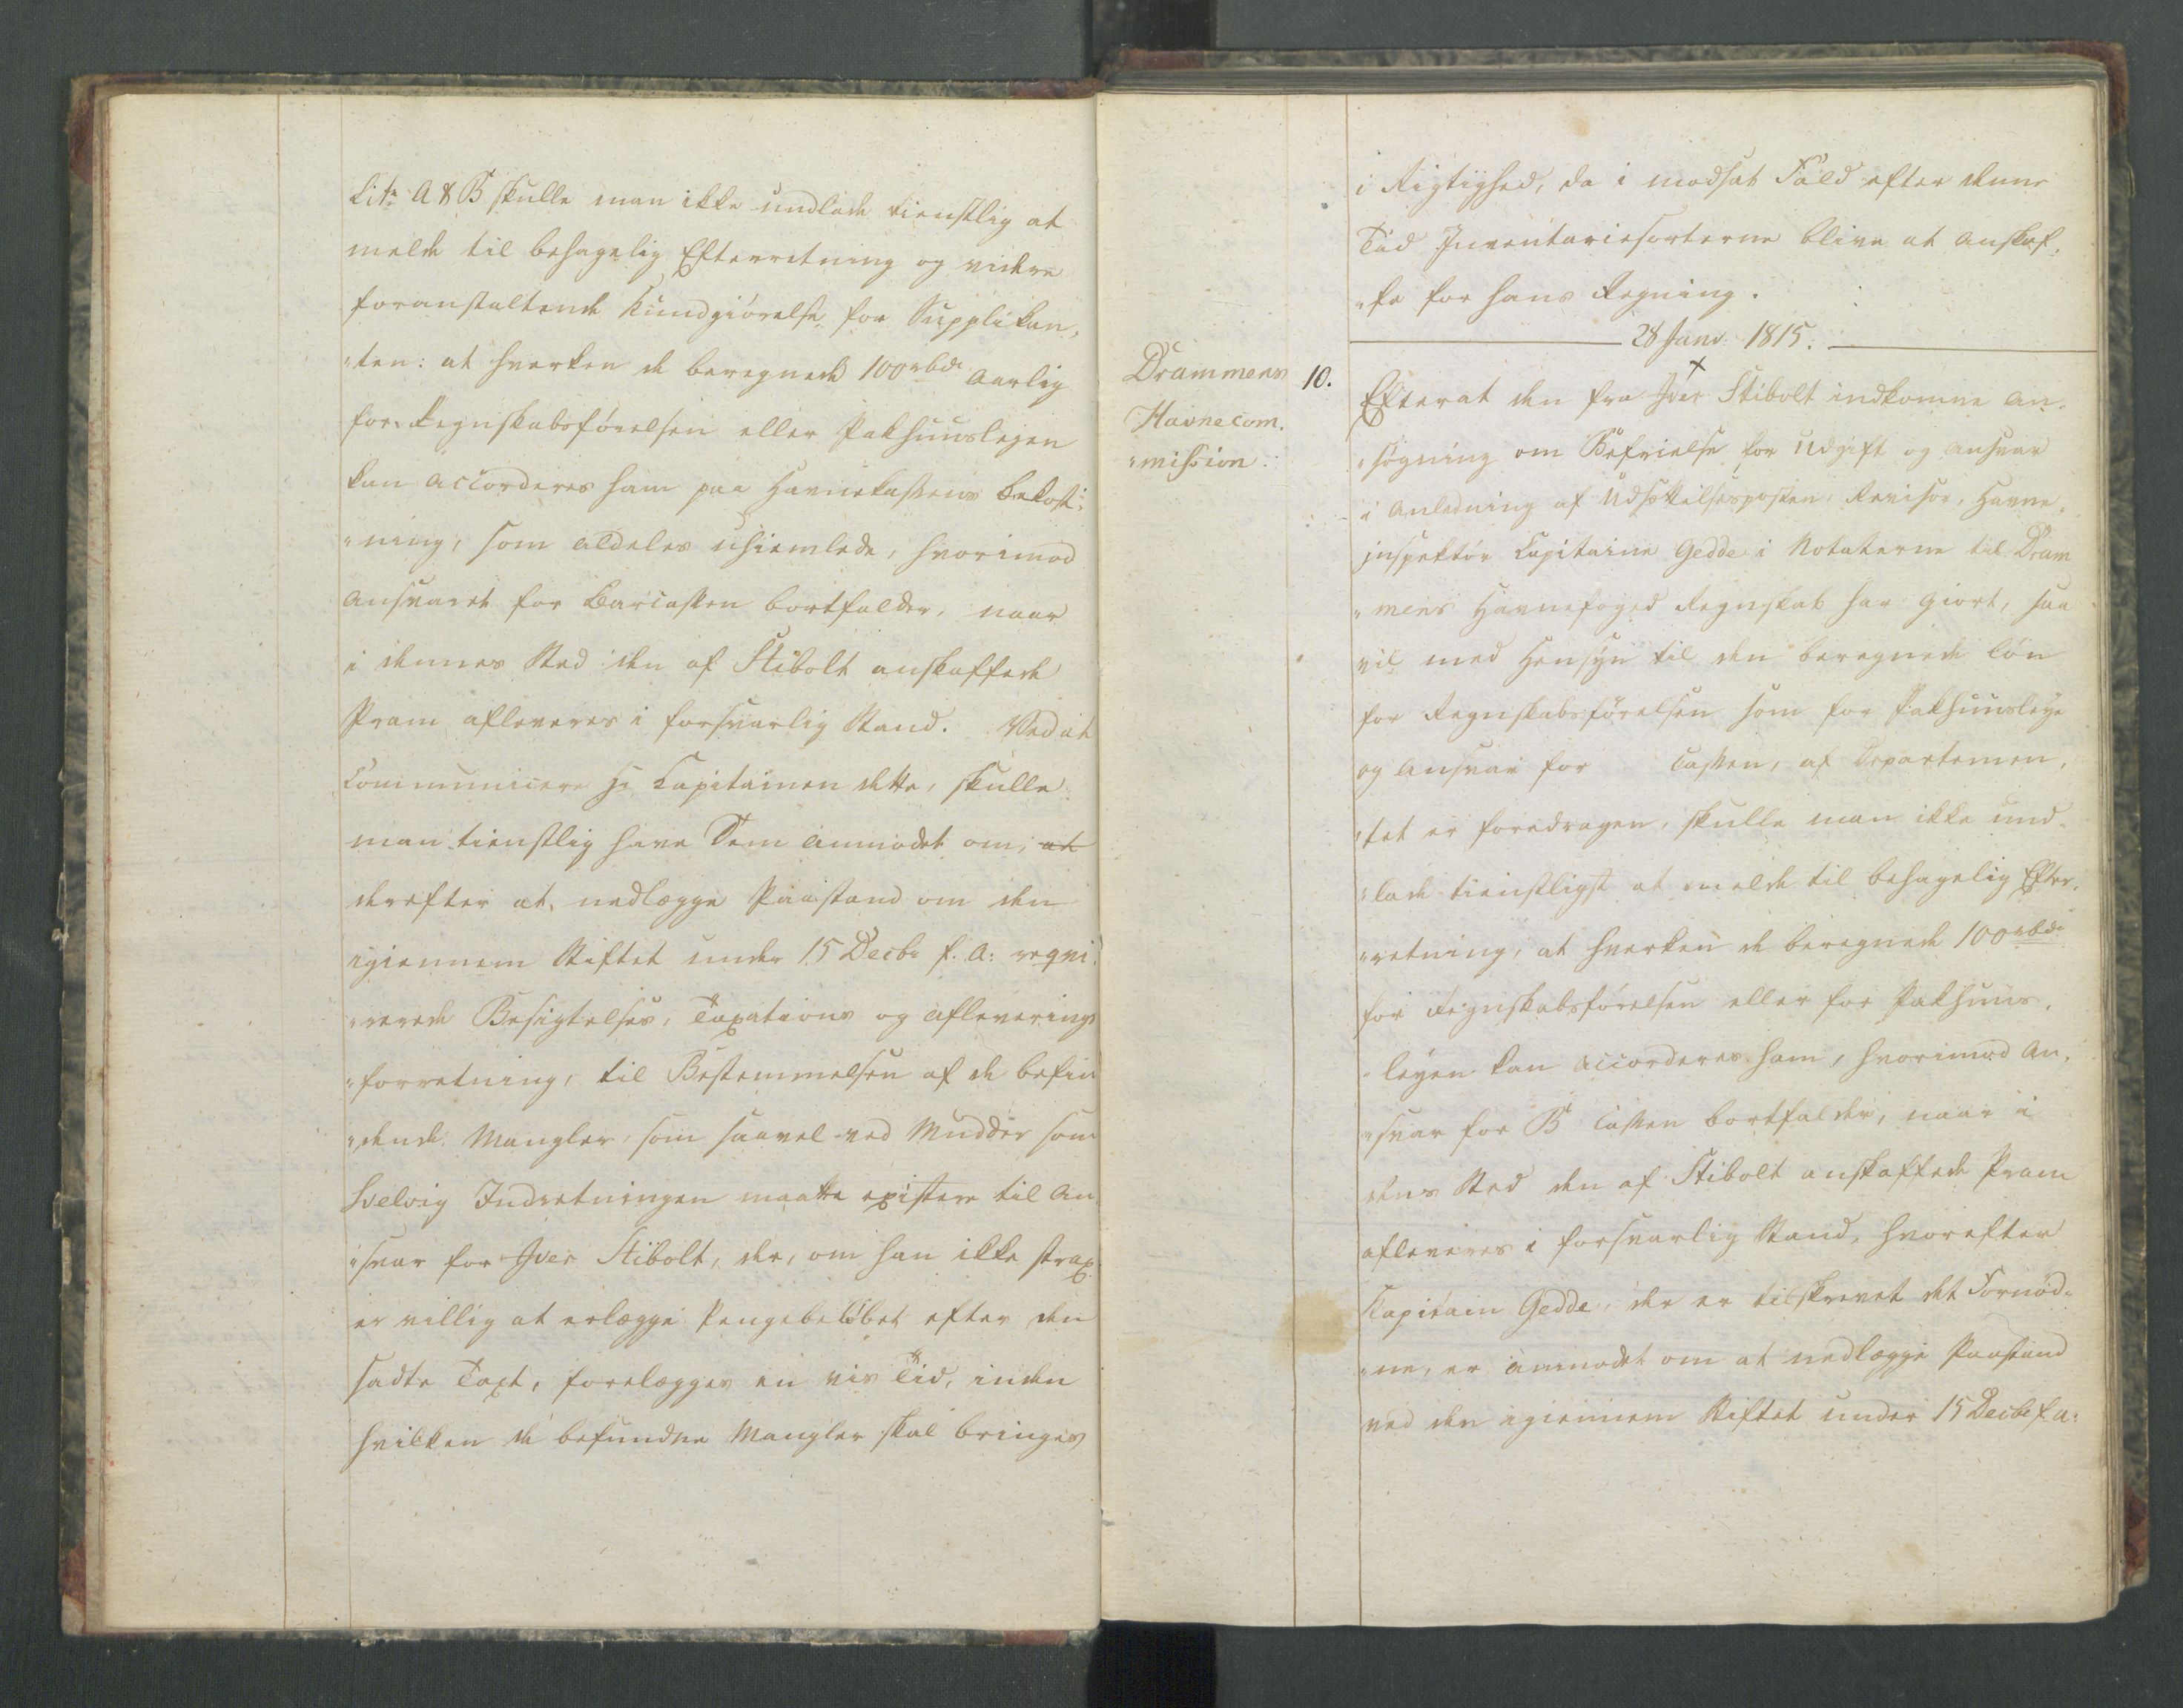 Litr A & B skulle man ikke undlade tienstlig at
melde til behagelig Efterretning og videre
foranstaltende Kundgiørelse for Supplikan,
"ten: at hverken de beregnede 100 rbdr aarlig
for Regnskabsførelsen eller Pakhuuslejen
kan accorderes ham paa Havnekassens Bekost,
"ning, som aldeles uhiemlede, hvorimod
Ansvaret for Barcassen bortfalder, naar
i dennes Sted den af Stibolt anskaffede
Pram afleveres i forsvarlig Stand. Ved at
Communicere Hr Capitainen dette, skulle
man tienstlig have Dem anmodet om, at
derefter at nedlægge Paastand om den
igiennem Stiftet under 15 Decbr f. A: reqvi,
"rerede Besigtelses, Taxations og afleverings
"forretning, til Bestemmelsen af de befin
"dende Mangler, som saavel ved Mudder som
Svelvig Indretningen maatte existere til An,
"svar for Iver Stibolt, der, om han ikke strax
er villig at erlægge Pengebeløbet efter den
sadte Taxt, forelægges en vis Tid, inden
hvilken de befundne Mangler skal bringes
i Rigtighed, da i modsat Fald efter denne
Tid Inventariesorterne blive at anskaf,
"fe for hans Regning.
28 Janv. 1815.
Drammens
Havnecom,
"mission.
10.
Efterat den fra Iver Stibolt indkomne An,
"søgning om Befrielse for Udgift og Ansvar
i Anledning af Udsættelsesposten, Revisor, Havne,
inspektør Capitaine Gedde i Notaterne til Dram
"mens Havnefoged Regnskab har giort, saa
vel med Hensyn til den beregnede Løn
for Regnskabsførelsen som for Pakhuusleye
og Ansvar for cassen, af Departemen,
"tet er foredragen, skulle man ikke und,
"lade tienstligst at melde til behagelig Efter,
"retning, at hverken de beregnede 100 rbdr
for Regnskabsførelsen eller for Pakhuus,
"leyen kan accorderes ham, hvorimod An,
"svar for B cassen bortfalder, naar i
dens Sted den af Stibolt anskaffede Pram
afleveres i forsvarlig Stand, hvorefter
Kapitain Gedde, der er tilskrevet det Fornød,
"ne, er anmodet om at nedlægge Paastand
ved den igiennem Stiftet under 15 Decbr f. a: